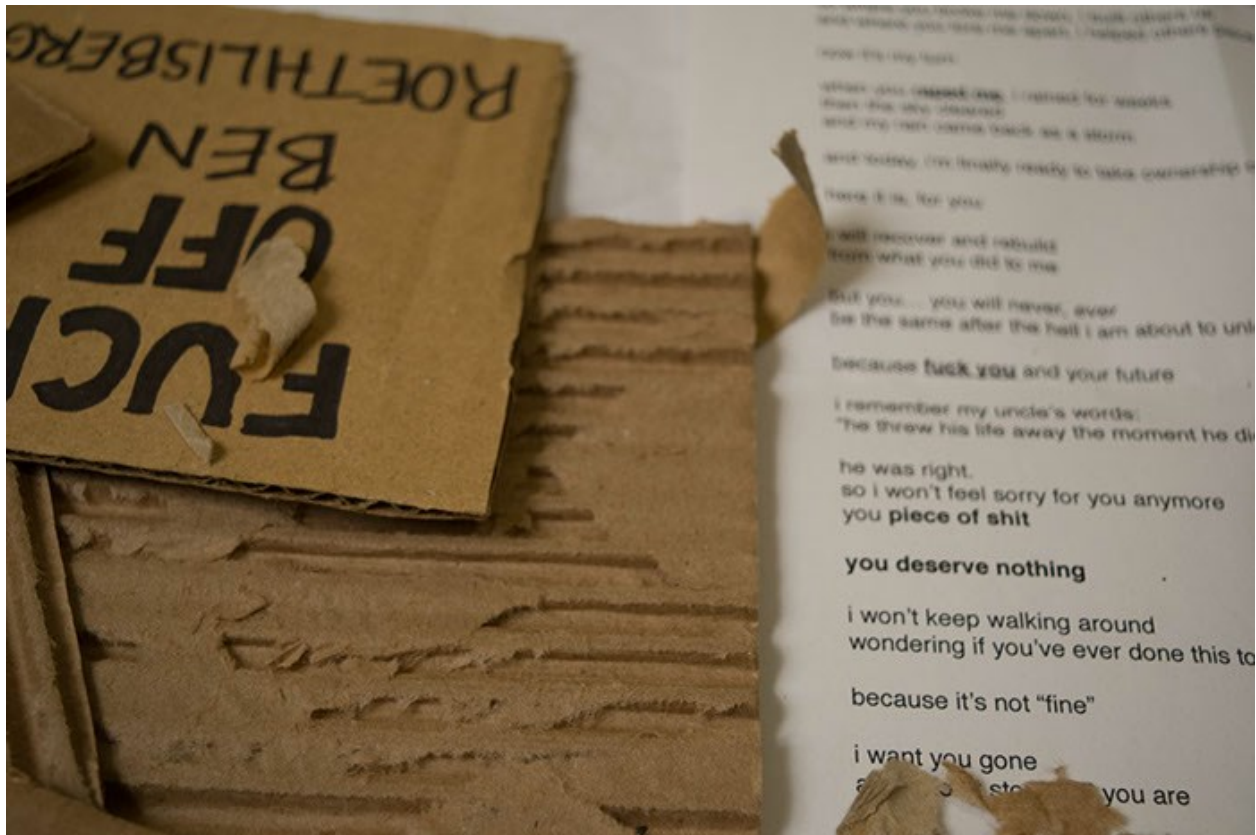 FUCK
OFF
BEN
ROETHLISBERG
and where you tore me apart, i helped others
now it's my turn
when you raped me, i rained for weeks
then the sky cleared
and my rain came back as a storm
and today, i'm finally ready to take ownership
here it is, for you
i will recover and rebuild
from what you did to me
but you... you will never, ever
be the same after the hell i am about to unl
because fuck you and your future
i remember my uncle's words:
"he threw his life away the moment he di
he was right.
so i won't feel sorry for you anymore
you piece of shit
you deserve nothing
i won't keep walking around
wondering if you've ever done this to
because it's not “fine”
i want you gone
you are